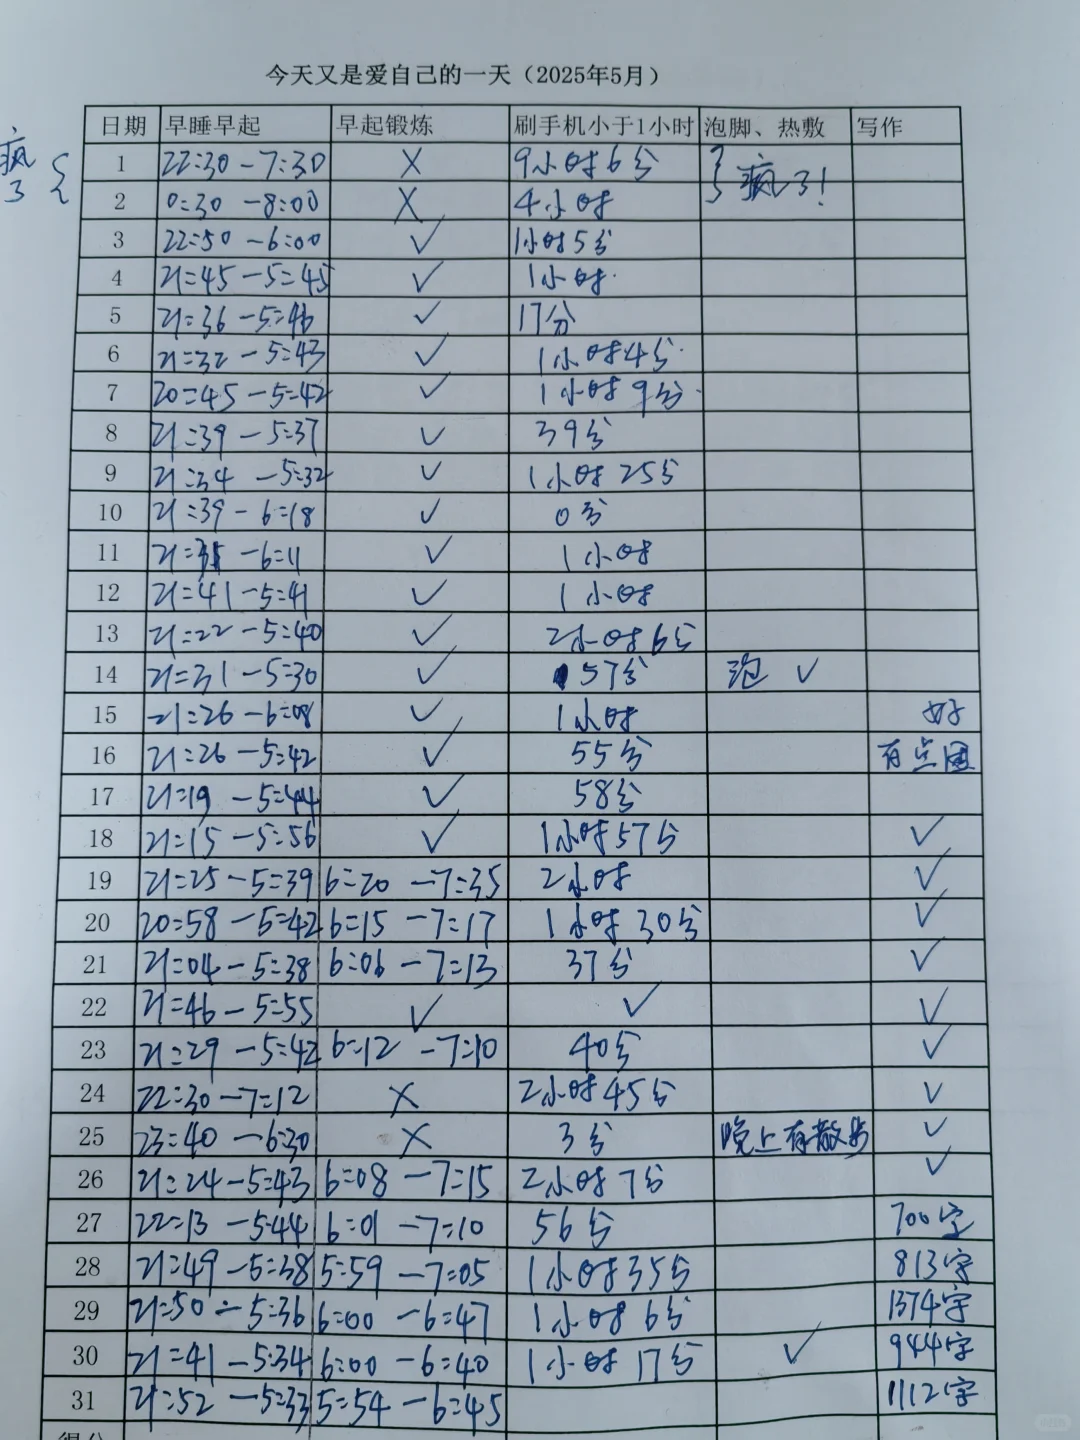 今天又是爱自己的一天（2025年5月）
日期 早睡早起 早起锻炼 刷手机小于1小时 泡脚、热敷 写作
疯了 { 1 22:30-7:30 × 9小时6分 } 疯了!
2 0:30-8:00 × 4小时
3 22:50-6:00 ✓ 1小时5分
4 21:45-5:45 ✓ 1小时
5 21:36-5:46 ✓ 17分
6 21:32-5:43 ✓ 1小时4分
7 20:45-5:42 ✓ 1小时9分
8 21:39-5:37 ✓ 39分
9 21:34-5:32 ✓ 1小时25分
10 21:39-6:18 ✓ 0分
11 21:35-6:11 ✓ 1小时
12 21:41-5:41 ✓ 1小时
13 21:22-5:40 ✓ 2小时6分
14 21:31-5:30 ✓ 57分 泡 ✓
15 21:26-6:08 ✓ 1小时 好
16 21:26-5:42 ✓ 55分 有点困
17 21:19-5:44 ✓ 58分
18 21:15-5:56 ✓ 1小时57分 ✓
19 21:25-5:39 6:20-7:35 2小时 ✓
20 20:58-5:42 6:15-7:17 1小时30分 ✓
21 21:04-5:38 6:06-7:13 37分 ✓
22 21:46-5:55 ✓ ✓ ✓
23 21:29-5:42 6:12-7:10 40分 ✓
24 22:30-7:12 × 2小时45分 ✓
25 23:40-6:30 × 3分 晚上有散步 ✓
26 21:24-5:43 6:08-7:15 2小时7分 ✓
27 22:13-5:44 6:01-7:10 56分 700字
28 21:49-5:38 5:59-7:05 1小时35分 813字
29 21:50-5:36 6:00-6:47 1小时6分 1374字
30 21:41-5:34 6:00-6:40 1小时17分 ✓ 944字
31 21:52-5:33 5:54-6:45 1112字